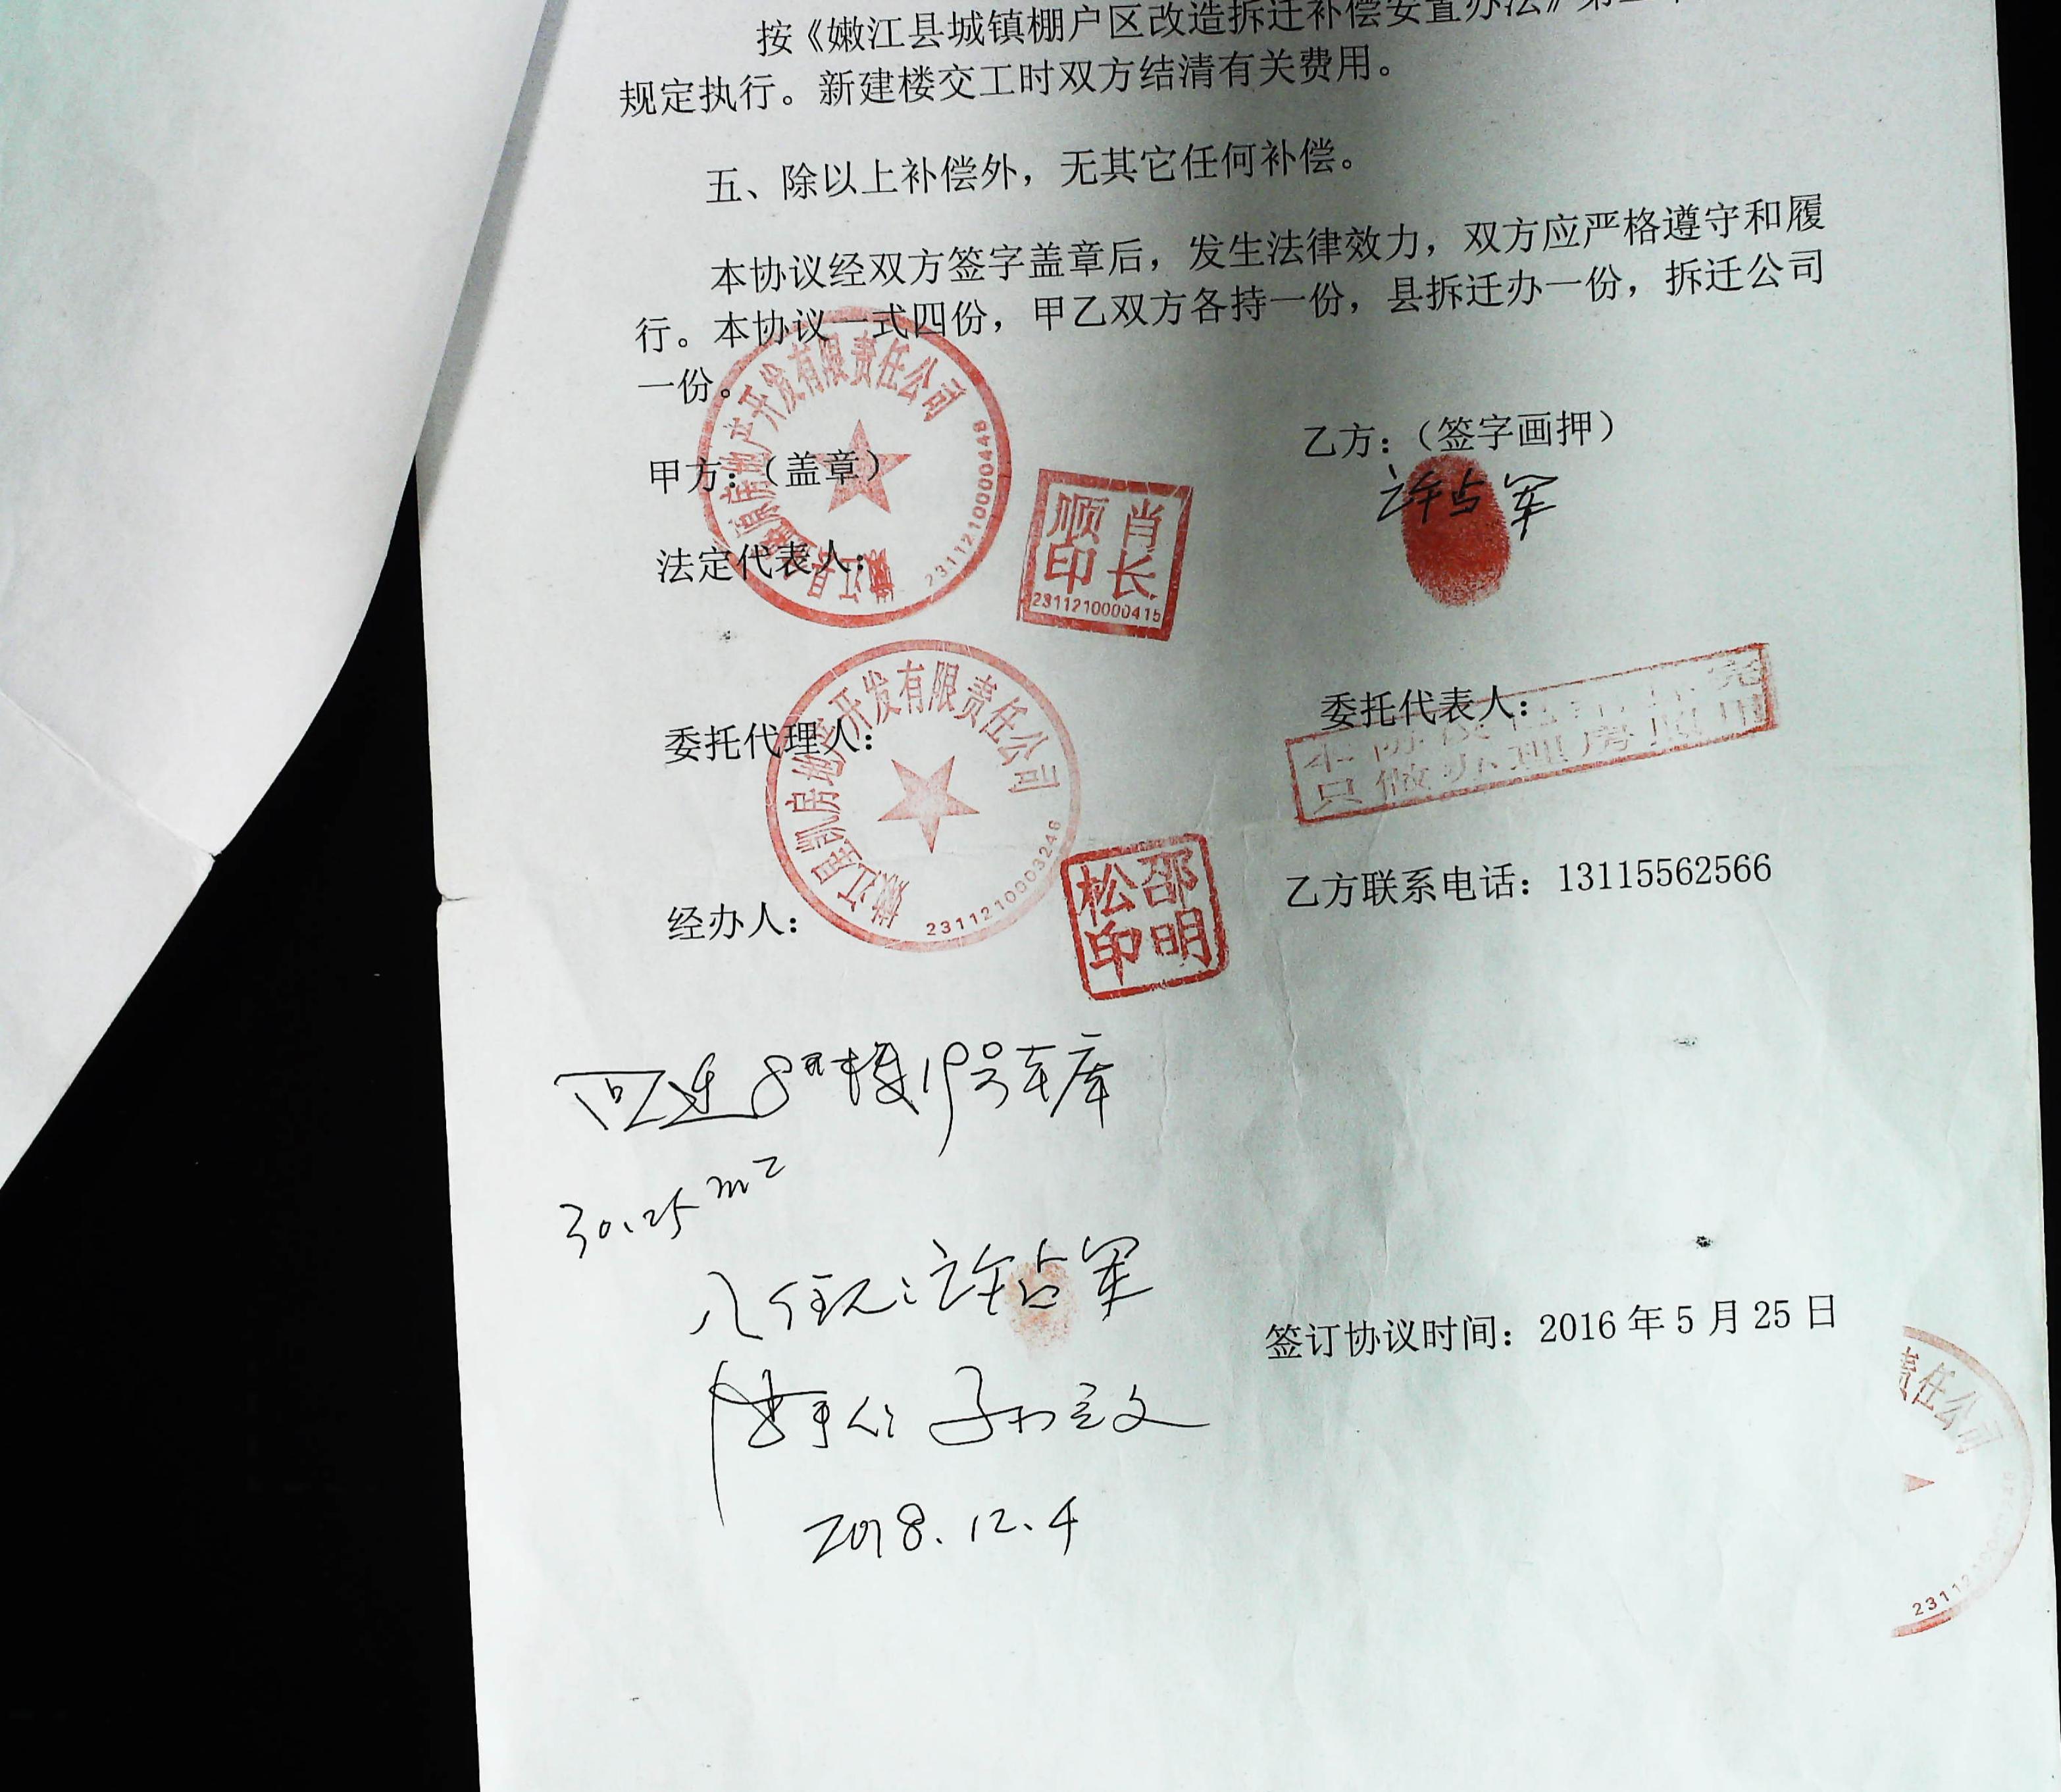 按《嫩江县城镇棚户区改造拆迁补偿安置办法》第
规定执行。新建楼交工时双方结清有关费用。
五、除以上补偿外，无其它任何补偿。
本协议经双方签字盖章后，发生法律效力，双方应严格遵守和履
行。本协议一式四份，甲乙双方各持一份，县拆迁办一份，拆迁公司
一份。
甲方：（盖章）
乙方：（签字画押）
许占军
房地产开发有限责任公司
嫩江县
2311210000448
法定代表人：
肖长
顺印
2311210000415
委托代理人：
嫩江星凯房地产开发有限责任公司
2311210003246
委托代表人：
只做办理房照用
经办人：
邵明
松印
乙方联系电话：13115562566
回迁8#楼19号车库
30.25m²
入住人：许占军
孙立文
2018.12.4
签订协议时间：2016年5月25日
责任公司
2311